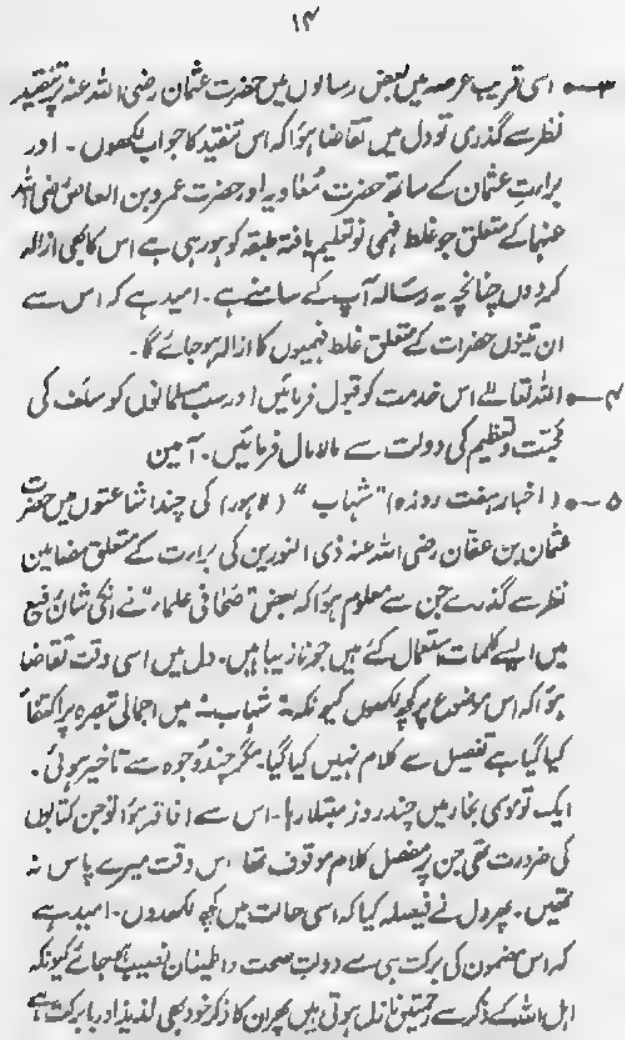 ۱۴
۳—● اسی قریب عرصہ میں بعض رسالوں میں حضرت عثمان رضی اللہ عنہ پر تنقید
نظر سے گذری تو دل میں تقاضا ہوٗا کہ اس تنقید کا جواب لکھوں۔ اور
براءتِ عثمان کے ساتھ حضرت مُعاویہ اور حضرت عمرو بن العاص رضی اللہ
عنہما کے متعلق جو غلط فہمی نو تعلیم یافتہ طبقہ کو ہو رہی ہے اس کا بھی ازالہ
کر دوں چنانچہ یہ رسالہ آپ کے سامنے ہے۔ امید ہے کہ اس سے
ان تینوں حضرات کے متعلق غلط فہمیوں کا ازالہ ہو جائے گا۔
۴—● اللہ تعالےٰ اس خدمت کو قبول فرمائیں اور سب مسلمانوں کو سلَف کی
محبّت و تعظیم کی دولت سے مالا مال فرمائیں۔ آمین
۵—● (اخبار ہفت روزہ) "شہاب" (لاہور) کی چند اشاعتوں میں حضرت
عثمان بن عفّان رضی اللہ عنہ ذی النورین کی براءت کے متعلق مضامین
نظر سے گذرے جن سے معلوم ہوٗا کہ بعض "صُحافی علماء" نے انکی شانِ رفیع
میں ایسے کلمات استعمال کئے ہیں جو نازیبا ہیں۔ دل میں اسی وقت تقاضا
ہوٗا کہ اس موضوع پر کچھ لکھوں کیونکہ "شہاب" میں اجمالی تبصرہ پر اکتفاءً
کیا گیا ہے تفصیل سے کلام نہیں کیا گیا۔ مگر چند وُجوہ سے تاخیر ہوئی۔
ایک تو موسمی بخار میں چند روز مبتلا رہا۔ اس سے افاقہ ہوٗا تو جن کتابوں
کی ضرورت تھی جن پر مفصل کلام موقوف تھا اس وقت میرے پاس نہ
تھیں۔ پھر دل نے فیصلہ کیا کہ اسی حالت میں کچھ لکھدوں۔ امید ہے
کہ اس مضمون کی برکت ہی سے دولتِ صحت و اطمینان نصیب ہو جائے کیونکہ
اہل اللہ کے ذکر سے رحمتیں نازل ہوتی ہیں پھر ان کا ذکر خود بھی لذیذ اور بابرکت ہے